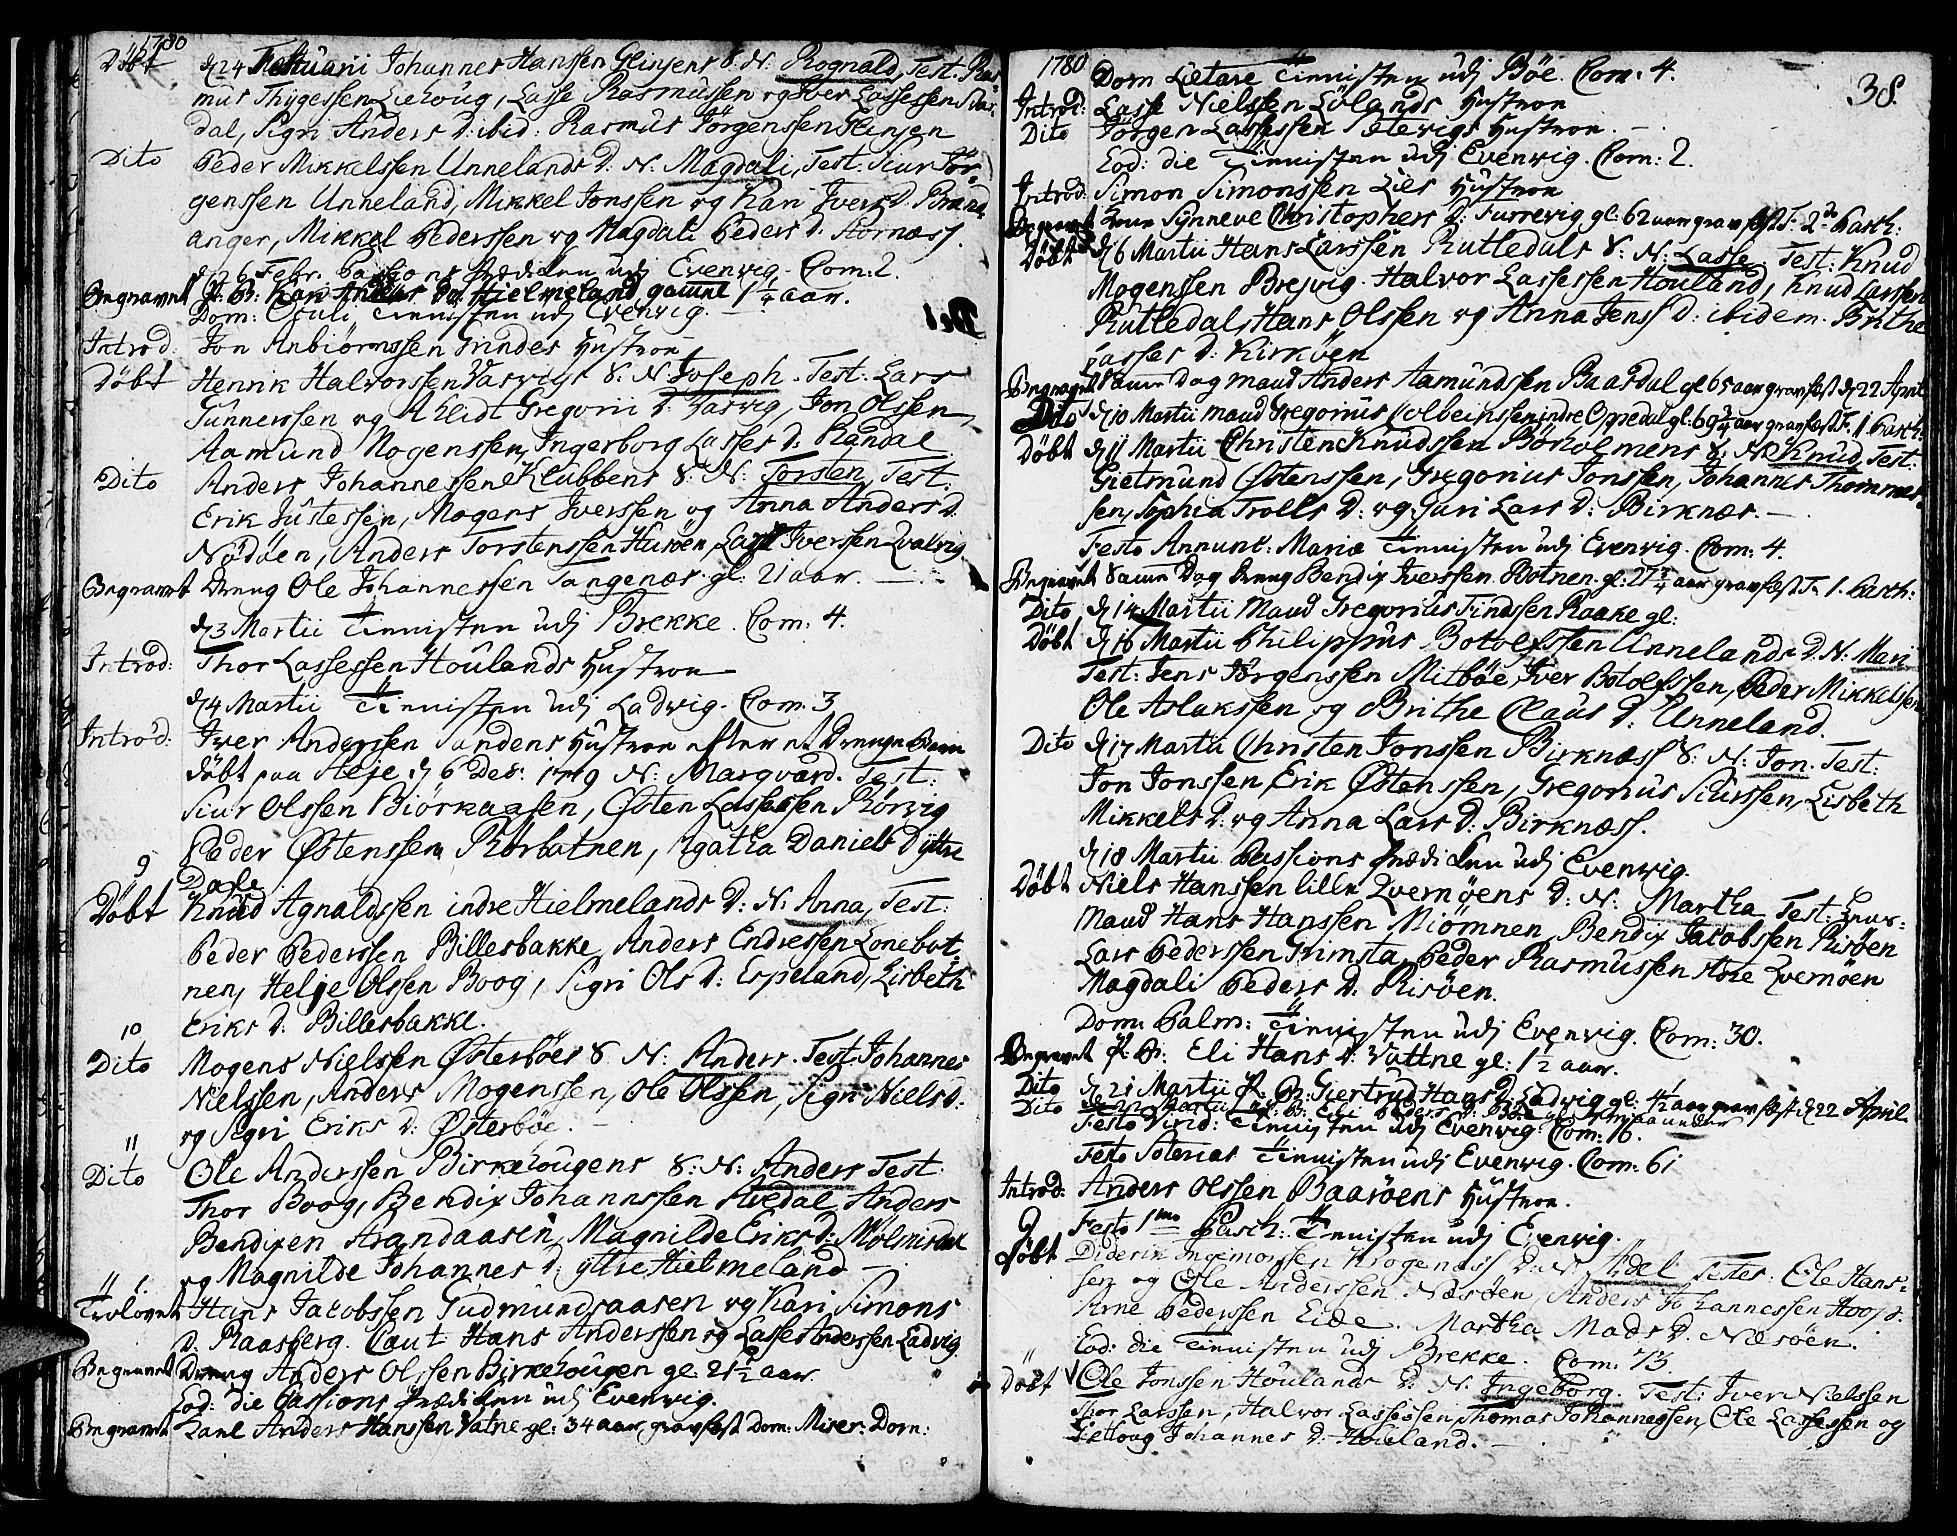 1780
Döbt d 24 Februarii Johannes Hanssen Glinjens S. N: Rognald, Test. Ras
mus Thygessen Liehoug, Lasse Rasmussen og Iver Lassessen
dal, Sigri Anders D: ibid: Rasmus Jörgenssen Glinjen
Dito Peder Mikkelssen Unnelands D: N: Magdali, Test. Siur Jör-
genssen Unneland, Mikkel Jonssen og Kari Ivers D. Brand
anger, Mikkel Pederssen og Magdali Peders D. Störnæss.
d 26 Febr. Passions Prædiken udj Evenvig. Com: 2.
Begravet P. B: Kari Anders D. Hielmeland gamel 1 1/4 aar.
Dom: Oculi Tienisten udj Evenvig.
Introd: Jon Anbiörnssen Grindes Hustroe
Döbt Henrik Halvorssen Vasvigs S. N: Joseph. Test. Lars
Gunnerssen og Ahlidt Gregorii D: Vasvig, Jon Olssen,
Aamund Mogenssen, Ingerborg Lasses D. Randal
Dito Anders Johannessen Klubbens S. N. Torsten, Test:
Erik Justessen, Mogens Iverssen og Anna Anders D.
Nödöen, Anders Torstenssen Husöen, Lasse Iverssen Qvalvig
Begravet Dreng Ole Johannessen Tangenæs. gl. 21 aar.
d 3 Martii Tienisten udj Brekke. Com: 4.
Introd: Thor Lassessen Houlands Hustroe
d 4 Martii Tienisten udj Ladvig. Com. 3
Introd: Iver Anderssen Sandens Hustroe efter et Drenge Barn
döbt paa Heje d 6 Dec: 1779 N: Marqvard. Test:
Siur Olssen Biörkaasen, Østen Lassessen Rörvig
Peder Østenssen Rörbatnen, Agatha Daniels Dyttre
9 Dale
Döbt Knud Agnaldssen indre Hielmelands D: N: Anna, Test:
Peder Pederssen Billesbakke, Anders Endressen Lonebot:
nen, Helje Olssen Boog, Sigri Ols D: Espeland, Lisbeth
Eriks D. Billesbakke.
10
Dito Mogens Nielssen Österböes S N: Anders. Test. Johannes
Nielssen, Anders Mogenssen, Ole Olssen, Sigri Niels D:
og Sigri Eriks D: Österböe.
11
Dito Ole Anderssen Birkehougens S. N: Anders Test.
Thor Boog, Bendix Johannssen Avedal, Anders
Bendixen Arandaasen, Magnilde Eriks D: Molmisdal
og Magnilde Johannes D. yttre Hielmeland
Trolovet Hans Jacobssen Gudmundsaasen og Kari Simons
D. Raasberg. Caut Hans Anderssen og Lasse Anderssen Ladvig.
Begravet Dreng Anders Olssen Birkehougen gl. 21 1/2 aar.
Eod: die Passions Prædiken udj Evenvig.
Begravet Karl Anders Hanssen Vatne gl: 34 aar, gravfæst Dom: Miser: Dom:
1780 Dom Lætare Tienisten udj Böe. Com: 4.
38.
Introd: Lasse Nielssen Lölands Hustroe
Dito Jörgen Lassessen Hustroe.
Eod: die Tienisten udj Evenvig. Com: 2.
Introd: Simon Simonssen Lies Hustroe
Begravet Synneve Christophers D: Furrevig gl: 62 aar gravfæst F. 2d Pasch:
Döbt d 6 Martii Hans Larssen Rutledals S. N: Lasse. Test: Knud
Mogenssen Brejvig. Halvor Lassessen Houland, Knud Larssen
Rutledal, Hans Olssen og Anna Jens D: ibidem. Brithe
Lasses D: Kirköen
Begravet samme Dag mand Anders Aamundssen Baardal gl 65 aar gravfæst d 22 April
Dito d 10 Martii mand Gregorius Colbeinssen indre Oppedal gl: 69 3/4 aar gravfæst F. 1 Pasch:
Döbt d 11 Martii Christen Knudssen Börholmens S. N: Knud, Test:
Gietmund Østenssen, Gregorius Jonssen, Johannes Thommes
sen, Sophia Trolls D: og Guri Lars D: Birknæs.
Festo Annunt: Mariæ Tienisten udj Evenvig. Com: 4.
Begravet samme Dag Dreng Bendix Iverssen Botnen. gl: 27 3/4 aar gravfæst F. 1. Pasch:
Dito d 14 Martii mand Gregorius Findssen Raake gl:
Döbt d 16 Martii Philippus Botolfssen Unnelands D. N: Mari
Test: Jens Jörgenssen Mitböe, Iver Botolfssen, Peder Mikkelssen
Ole Aslakssen og Brithe Claus D: Unneland.
Dito d 17 Martii Christen Jonssen Birknæss S. N: Jon. Test:
Jon Jonssen, Erik Østenssen, Gregorius Siurssen, Lisbeth
Mikkels D: og Anna Lars D: Birknæss.
d 18 Martii Passions Prædiken udj Evenvig.
Döbt Niels Hanssen lille Qvernöens D: N: Martha Test:
mand Hans Hanssen Miömnen, Bendix Jacobssen Risöen
Lars Pederssen Grimsta, Peder Rasmussen store Qvernöen
Magdali Peders D: Risöen.
Dom: Palm: Tienisten udj Evenvig. Com: 30.
Begravet P. B: Eli Hans D: Vattne gl: 1 1/2 aar.
Dito d 21 Martii P. B: Giertrud Hans D: Ladvig gl: 4 1/2 aar gravfæst d 22 April
Dito d 22 Martii P. B: Eli Peders D: Böe
Festo Virid: Tienisten udj Evenvig. Com: 16.
Festo Soterias Tienisten udj Evenvig. Com: 61
Introd: Anders Olssen Baaröens Hustroe.
Festo 1mo Pasch: Tienisten udj Evenvig.
Döbt Diderik Ingemorssen Krogenæss D. N: Ädel Testes: Ole Hans-
sen og Ole Anderssen Næsöen, Anders Johannessen Hoop.
Arne Pederssen Eide. Martha Mads D. Næsöen.
Eod: die Tienisten udj Brekke. Com: 73
Döbt Ole Jonssen Houlands D: N: Ingeborg. Test: Iver Nielssen
Thor Larssen, Halvor Lassessen, Thomas Johannessen, Ole Lassessen og
Johannes D: Houland.